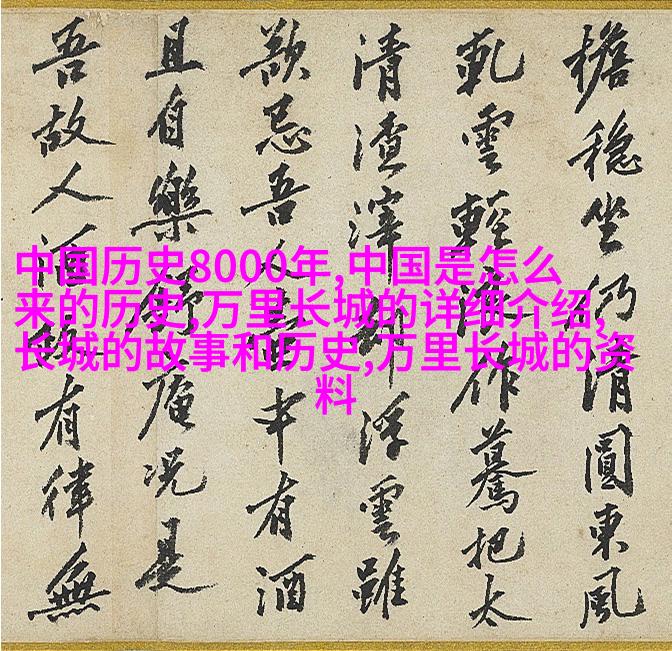 中国历史8000年,中国是怎么
来的历史,万里长城的详细介绍,
长城的故事和历史,万里长城的资
料
檐穩坐仍清圓東風
軋雲輕浪作驀把太
清渣滓卻浮雲雖
忌吾人中有酒
且自樂庵况是
吾故人酒有律無